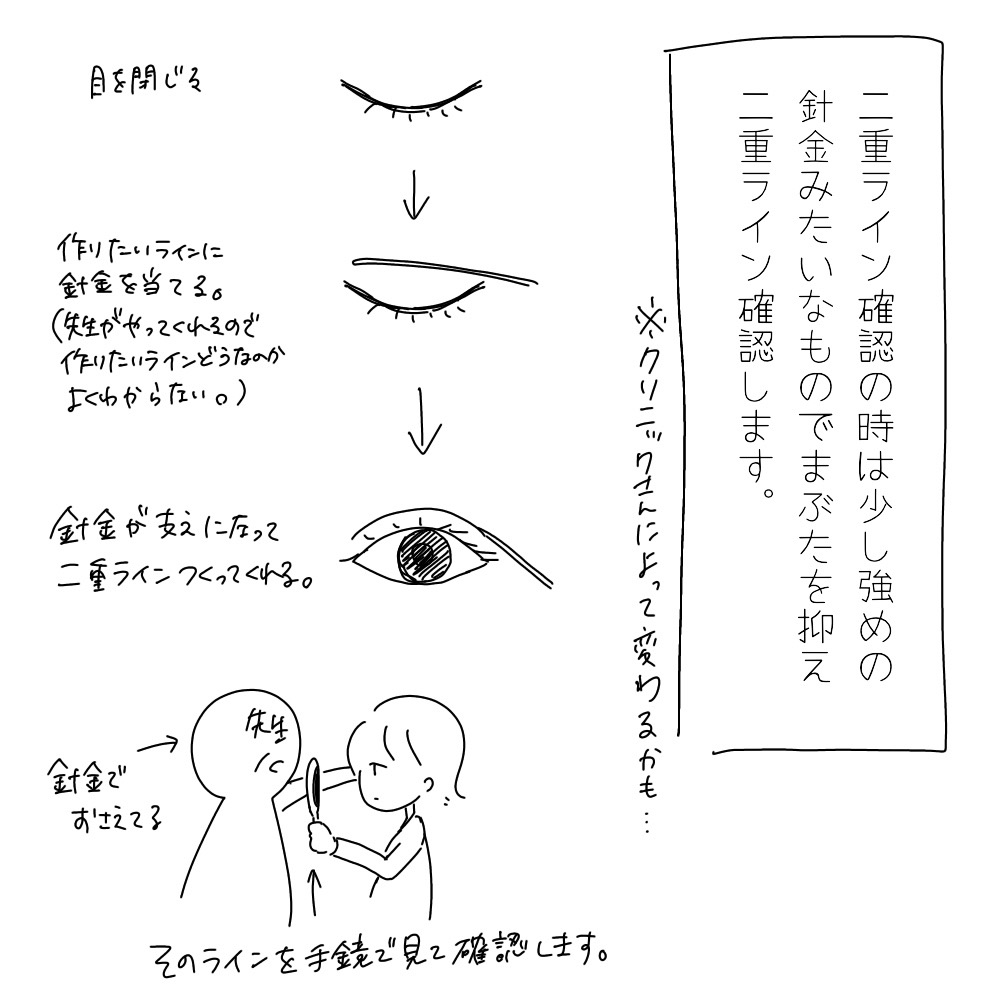 二重ライン確認の時は少し強めの
針金みたいなものでまぶたを抑え
二重ライン確認します。
※クリニックさんによって変わるかも…
目を閉じる
作りたいラインに
針金を当てる。
(先生がやってくれるので
作りたいラインどうなのか
よくわからない。)
針金が支えになって
二重ラインつくってくれる。
先生
針金で
おさえてる
そのラインを手鏡で見て確認します。